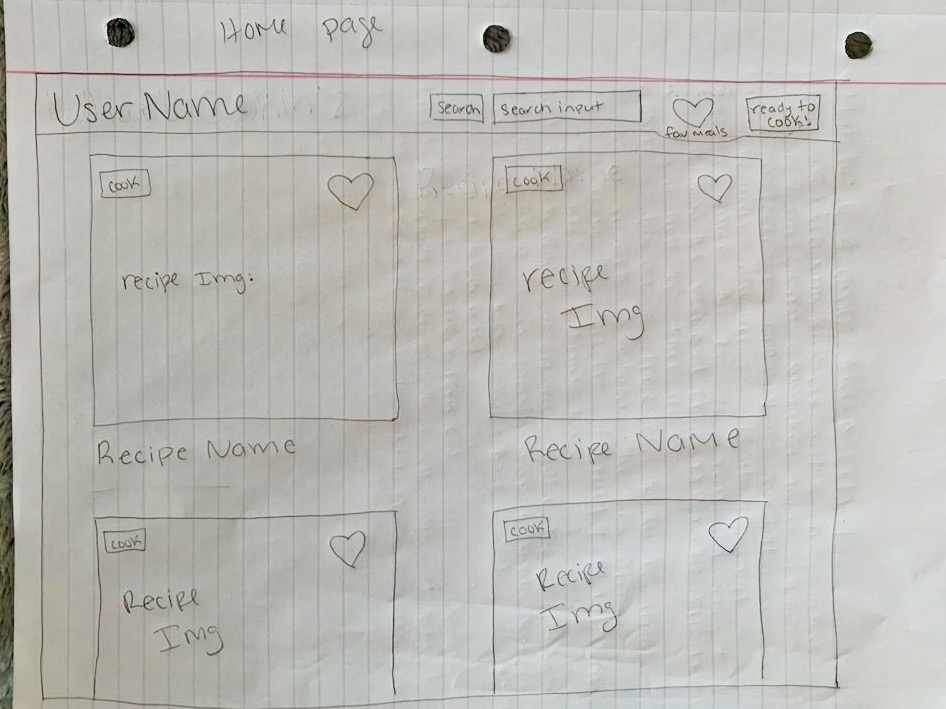 Home page
User Name
Search
Search input
fav meals
ready to
cook!
cook
recipe Img:
Recipe Name
cook
recipe
Img
Recipe Name
cook
Recipe
Img
cook
Recipe
Img